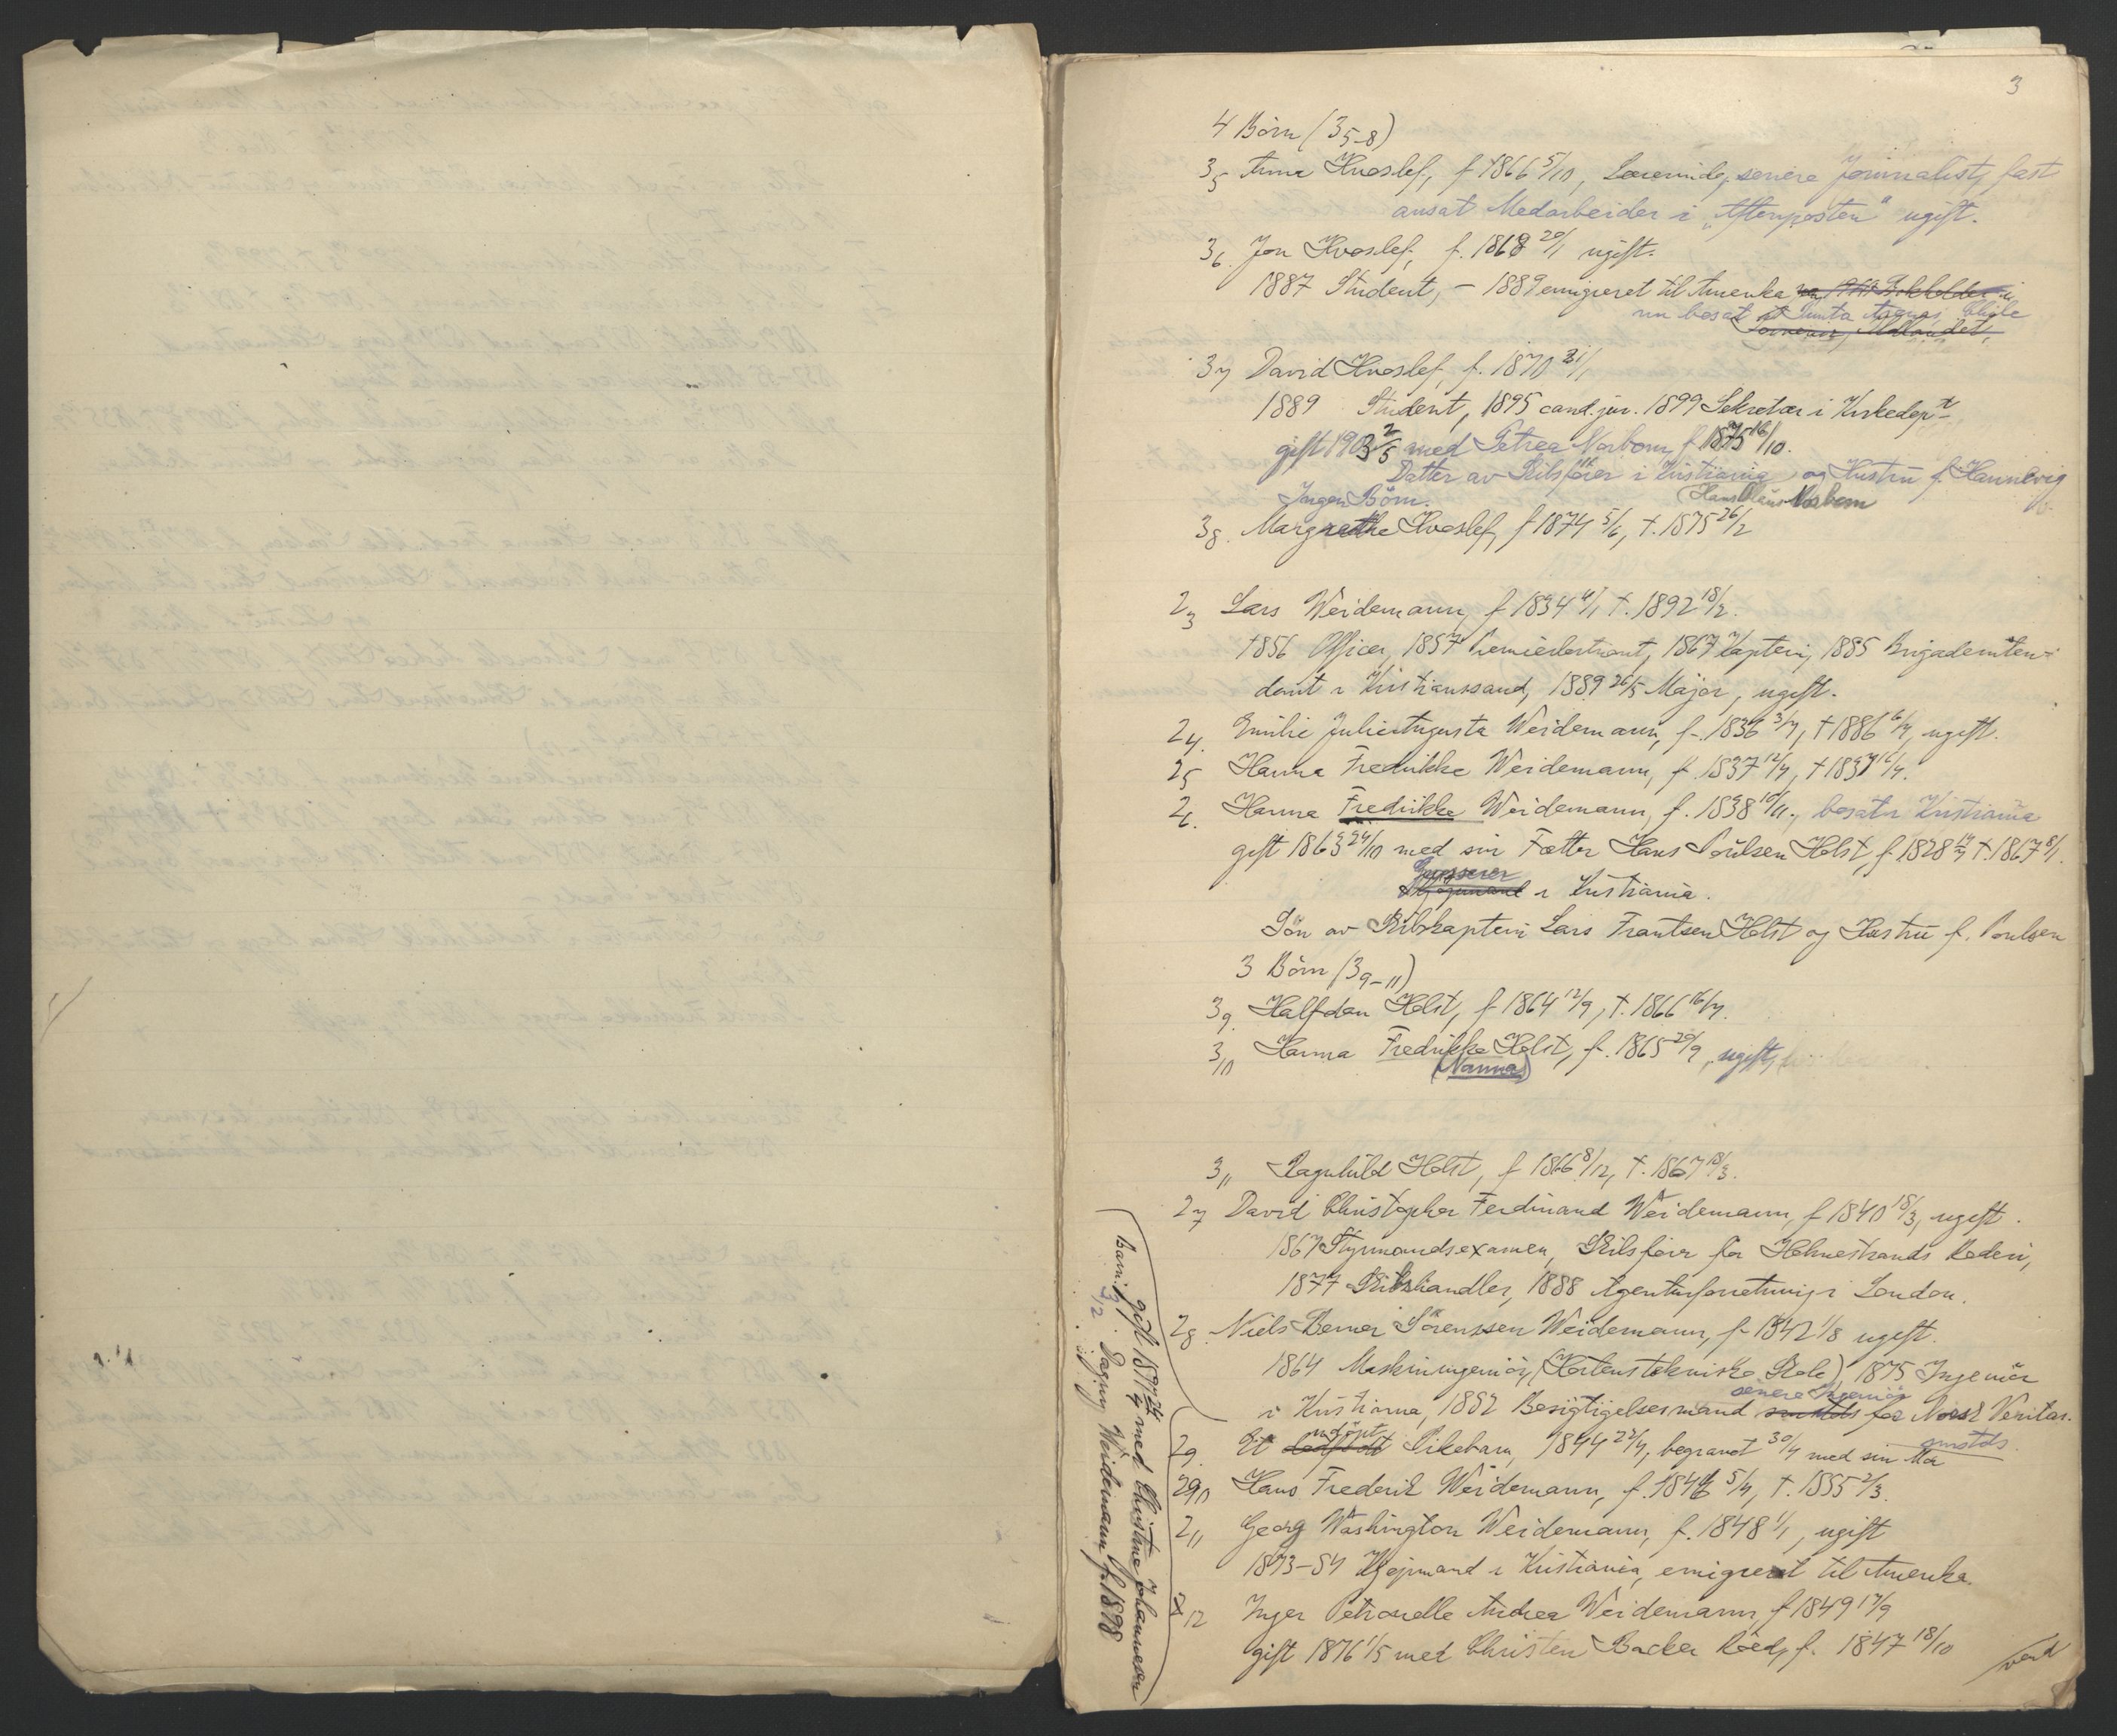 3
4 Börn (3 5-8)
3 5 Anna Hvoslef, f 1866 5/10, Lærerinde, senere Journalist, fast
ansat Medarbeider i „Aftenposten“ ugift.
3 6. Jon Hvoslef, f. 1868 20/1 ugift.
1887 Student, – 1889 emigreret til Amerika
nu bosat i Punta Arenas, Chile
3 7 David Hvoslef, f. 1870 31/1
1889 Student, 1895 cand. jur. 1899 Sekretær i Kirkedept
gift 1903 2/5 med Petrea Norbom, f 1875 16/10.
Datter av Skibsfører i Kristiania og Hustru f. Hannevig
Ingen Börn. (Hans Claus Norbom
3 8. Margrethe Hvoslef, f 1874 5/6, †. 1875 26/2
2 3 Lars Weidemann, f 1834 4/1 †. 1892 18/2.
1856 Officer, 1857 Premierløitnant, 1867 Kaptein, 1885 Brigadeinten-
dant i Kristianssand, 1889 26/5 Major, ugift.
2 4. Emilie Julie Augusta Weidemann, f. 1836 3/7, † 1886 16/7, ugift.
2 5 Hanna Fredrikke Weidemann, f. 1837 12/7, † 1837 16/7.
2 6. Hanna Fredrikke Weidemann, f. 1838 10/11., bosat i Kristiania
gift 1863 24/10 med sin Fætter Hans Poulsen Holst, f 1828 14/7 †. 1867 8/1.
Grosserer
Kjøpmand i Kristiania.
Sön av Skibskaptein Lars Frantsen Holst og Hustru f. Poulsen
3 Börn (3 9-11)
3 9. Halfdan Holst, f 1864 12/9, †. 1866 16/7.
3 10 Hanna Fredrikke Holst, f. 1865 20/9, ugift,
(Nanna)
3 11 Ragnhild Holst, f 1866 8/12, †. 1867 18/3.
2 7 David Christopher Ferdinand Weidemann, f 1840 18/3, ugift.
1867 Styrmandsexamen, Skibsfører for Holmestrands Rederi,
1877 Skibshandler, 1888 Agenturforretning i London.
2 8. Niels Berner Sörenssen Weidemann, f. 1842 1/8 ugift.
1864 Maskiningeniör, (Hortens tekniske Skole), 1875 Ingeniör
senere Ingeniör
i Kristiania, 1882 Besigtigelsesmand smstds for Norsk Veritas.
smstds
udöpt
2 9. Et Pikebarn, 1844 22/4, begravet 30/4 med sin Mor
2 10 Hans Frederik Weidemann, f. 1846 5/4, †. 1855 2/3.
2 11 Georg Washington Weidemann, f. 1848 1/1, ugift
1873–84 Kjøpmand i Kristiania, emigreret til Amerika.
2 12 Inger Petronelle Andrea Weidemann, f 1849 17/9
gift 1876 1/5 med Christen Backer Röed, f. 1847 18/10
vend
gift 1897 24/4 med Christine Johannesen
Barn: 3 12. Dagny Weidemann f. 1898